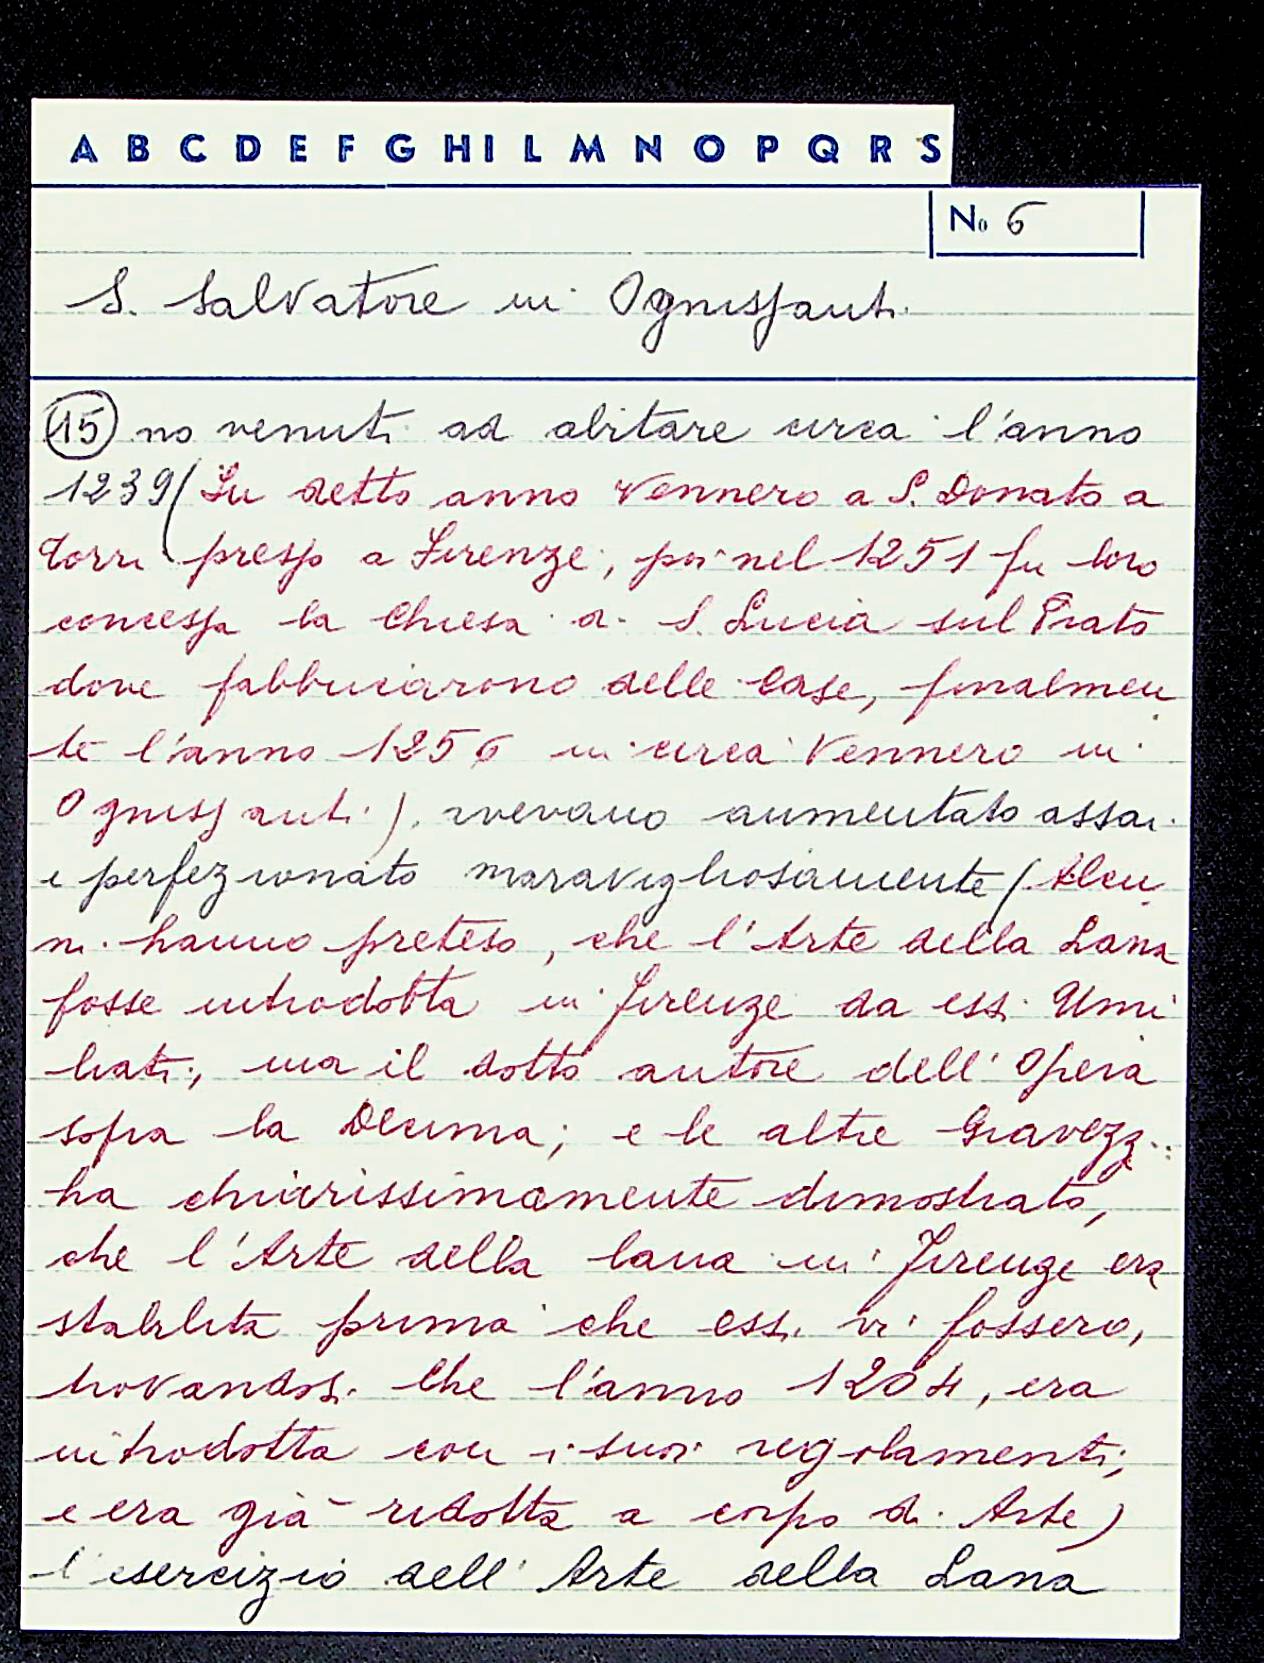 A B C D E F G H I L M N O P Q R S
No 6
S. Salvatore in Ognissanti
15 no venuti ad abitare circa l'anno
1239 (In detto anno vennero a S. Donato a
Torri presso a Firenze, poi nel 1251 fu loro
concessa la Chiesa di S. Lucia sul Prato
dove fabbricarono delle Case, finalmen
te l'anno 1256 in circa vennero in
Ognissanti), avevano aumentato assai
e perfezionato maravigliosamente (Alcu
ni hanno preteso, che l'Arte della Lana
fosse introdotta in Firenze da essi Umi
liati, ma il dotto autore dell'Opera
sopra la Decima; e le altre Gravezz..
ha chiarissimamente dimostrato,
che l'Arte della lana in Firenze era
stabilita prima che essi vi fossero,
trovandosi che l'anno 1204, era
introdotta con i suoi regolamenti,
e era già ridotta a corpo di Arte)
l'esercizio dell'Arte della Lana